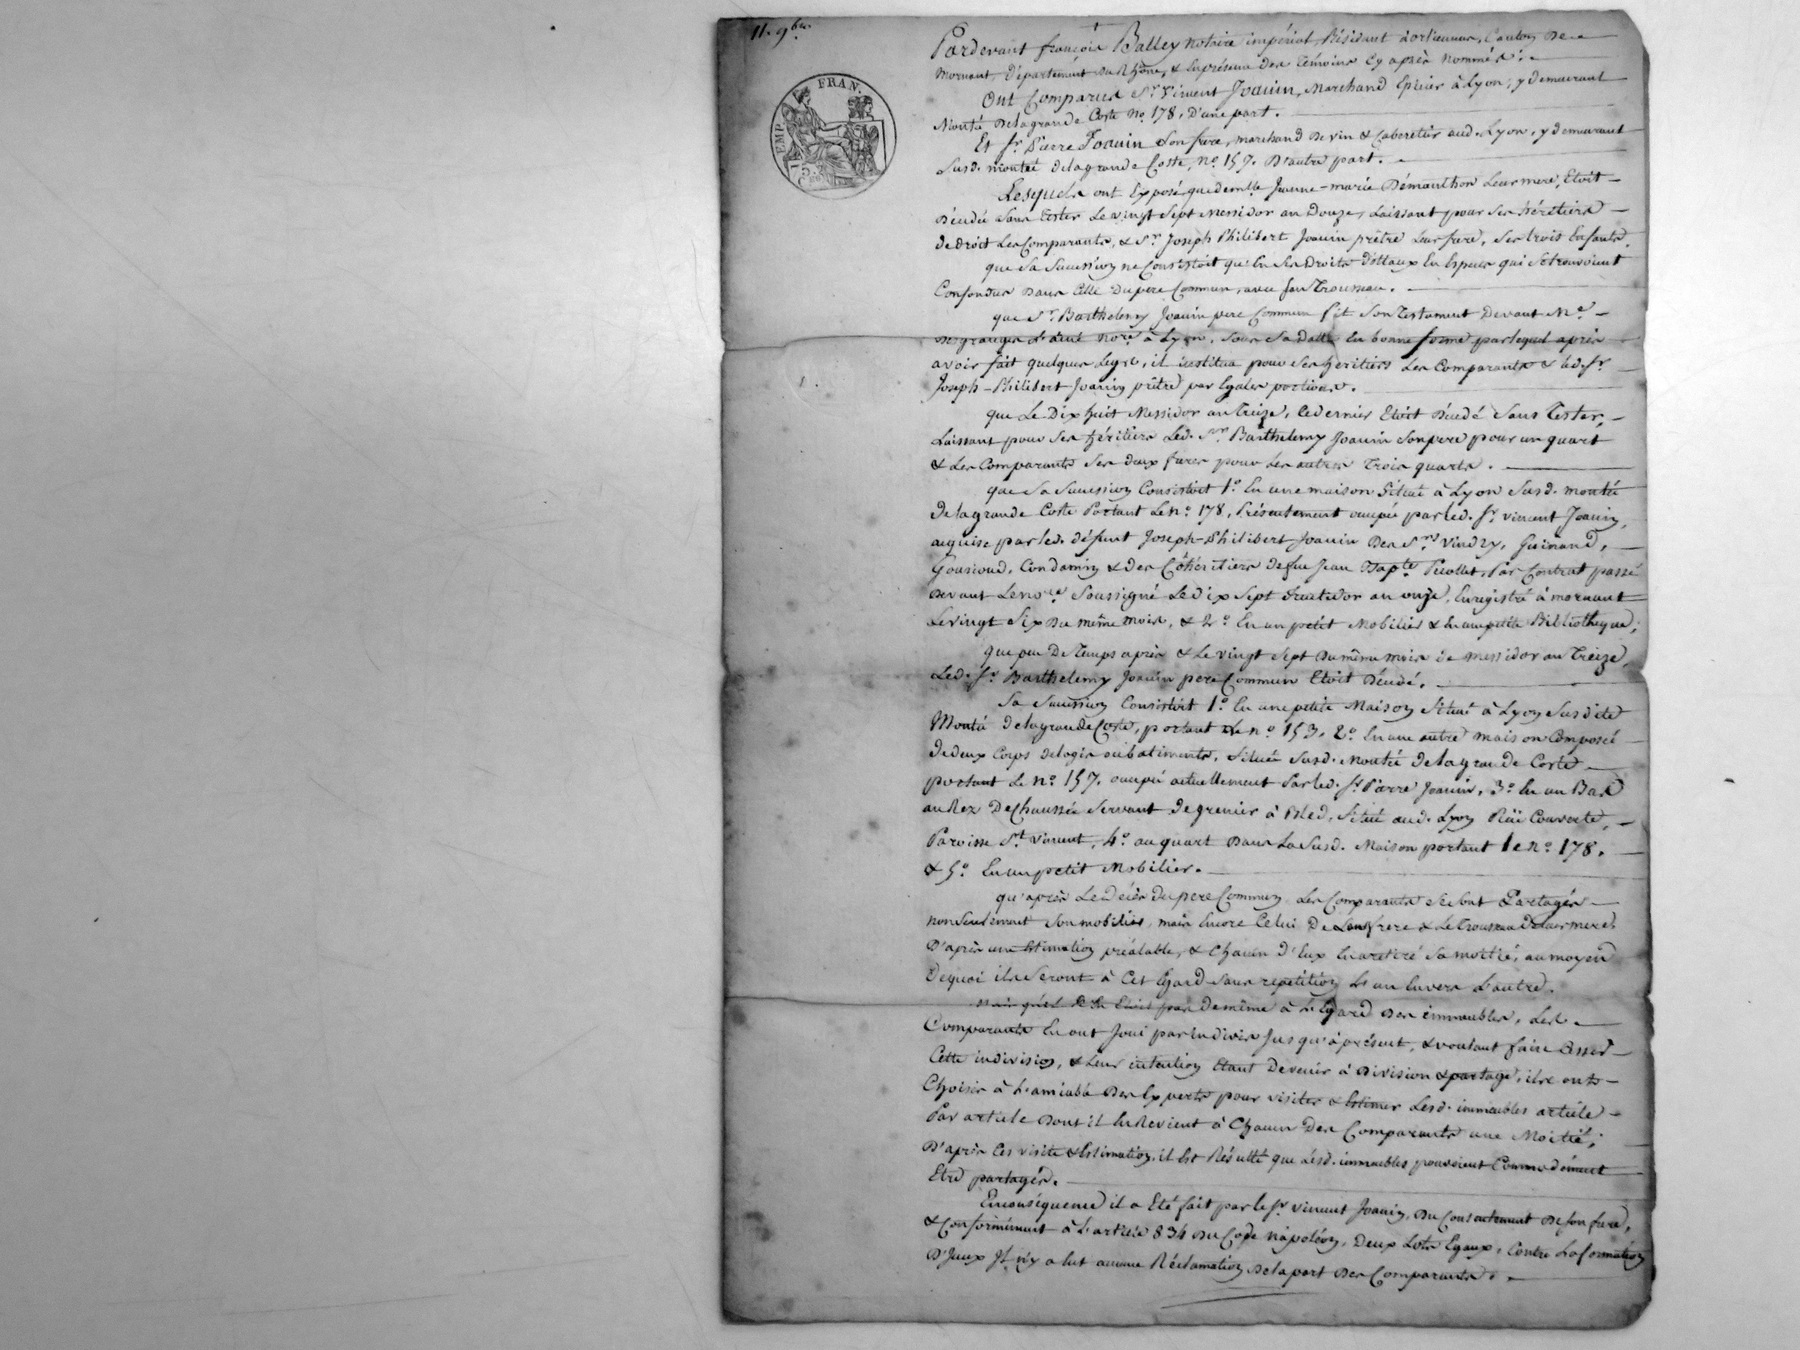 11. 9bre.
EMP. FRAN.
Pardevant françois Balley notaire impérial, Résidant à orlienas, Canton De
Mornant, Département Du Rhône, & En présence Des Témoins Cy après Nommés :
Ont Comparus Sr. Vincent Jovin, Marchand Epicier à Lyon, y demeurant
Montée De la grande Coste No. 178, D'une part.
Et Sr. Pierre Jovin Son frere, marchand De vin & Cabaretier aud. Lyon, y demeurant
Susd. montée de la grande Coste, no. 157. D'autre part.
Lesquels ont Exposé que demlle Jeanne-marie Démanthon Leur mere, Etoit
Décédée Sans Tester Le vingt Sept Messidor an Douze, Laissant pour Ses héritiers
de Droit Les Comparants, & Sr. Joseph Philibert Jovin prêtre Leur frere, Ses trois Enfants.
que Sa Succession ne Consistoit qu'En Ses Droits Dottaux En Especes qui Se trouvoient
Confondus Dans Celle Du pere Commun, avec Son Trousseau.
que Sr. Barthelemy Jovin pere Commun fit Son Testament Devant Me.
Desgranges L'ainé Nore. à Lyon, Sous Sa Datte En bonne forme par lequel après
avoir fait quelques Legs, il institua pour Ses heritiers Les Comparants & led. Sr.
Joseph-Philibert Jovin prêtre par Egales portions.
que Le Dix huit Messidor an Treize, Ce dernier Etoit Décédé Sans Tester,
Laissant pour Ses héritiers Led. Sr. Barthelemy Jovin Son pere pour un quart
& Les Comparants Ses deux freres pour Les autres Trois quarts.
que Sa Succession Consistoit 1o. En une maison Située à Lyon Susd. montée
de la grande Coste Portant Le no. 178, Présentement occupée par led. Sr. vincent Jovin,
acquise par led. défunt Joseph-Philibert Jovin Des Srs. Vindry, Guimand,
Condamin & Des Cohéritiers De feu Jean Bapte. Picollet, Par Contrat passé
Devant Le nore. Soussigné Le Dix Sept fructidor an onze, Enregistré à mornant
Le vingt Six Du même mois, & 2o. En un petit Mobilier & En une petite Bibliotheque ;
que peu De Temps après & Le vingt Sept Du même mois de messidor an Treize,
Led. Sr. Barthelemy Jovin pere Commun Etoit Décédé.
Sa Succession Consistoit 1o. En une petite Maison Située à Lyon Susdite
Montée de la grande Coste, portant Le no. 153. 2o. En une autre maison Composée
de deux Corps de logis ou batiments, Située Susd. Montée de la grande Coste
portant Le no. 157. occupée actuellement Par led. Sr. Pierre Jovin. 3o. En un Bas
au Rez De Chaussée Servant de grenier à Bled, Situé aud. Lyon Rüe Couverte,
Paroisse St. Vincent, 4o. au quart Dans La Susd. Maison portant le no. 178.
& 5o. En un petit Mobilier.
qu'après Le Décès Du pere Commun, Les Comparants Se Sont Partagés
non Seulement Son mobilier, mais Encore Celui De Leur frere & Le Trousseau De Leur mere,
D'après une Estimation préalable, & Chacun d'Eux En a retiré Sa moitié, au moyen
De quoi ils Seront à Cet Egard Sans repétition L'un Envers L'autre.
de même à L'Egard Des immeubles, Les
Comparants En ont Joui par Indivis Jusqu'à présent, & voulant faire Cesser
Cette indivision, & Leur intention Etant De venir à Division & partage, ils ont
Choisis à L'amiable Des Experts pour visiter & Estimer Lesd. immeubles article
Par article Dont il En Revient à Chacun Des Comparants une Moitié ;
D'après Ces visite & Estimation, il Est Résulté que Lesd. immeubles pouvoient Commodément
Etre partagés.
En conséquence il a Eté fait par le Sr. vincent Jovin, Du Consentement De Son frere,
& Conformément à L'article 834 Du Code napoléon, Deux Lots Egaux, Contre La formation
D'Iceux Il n'y a Eut aucune Réclamation De la part Des Comparants.